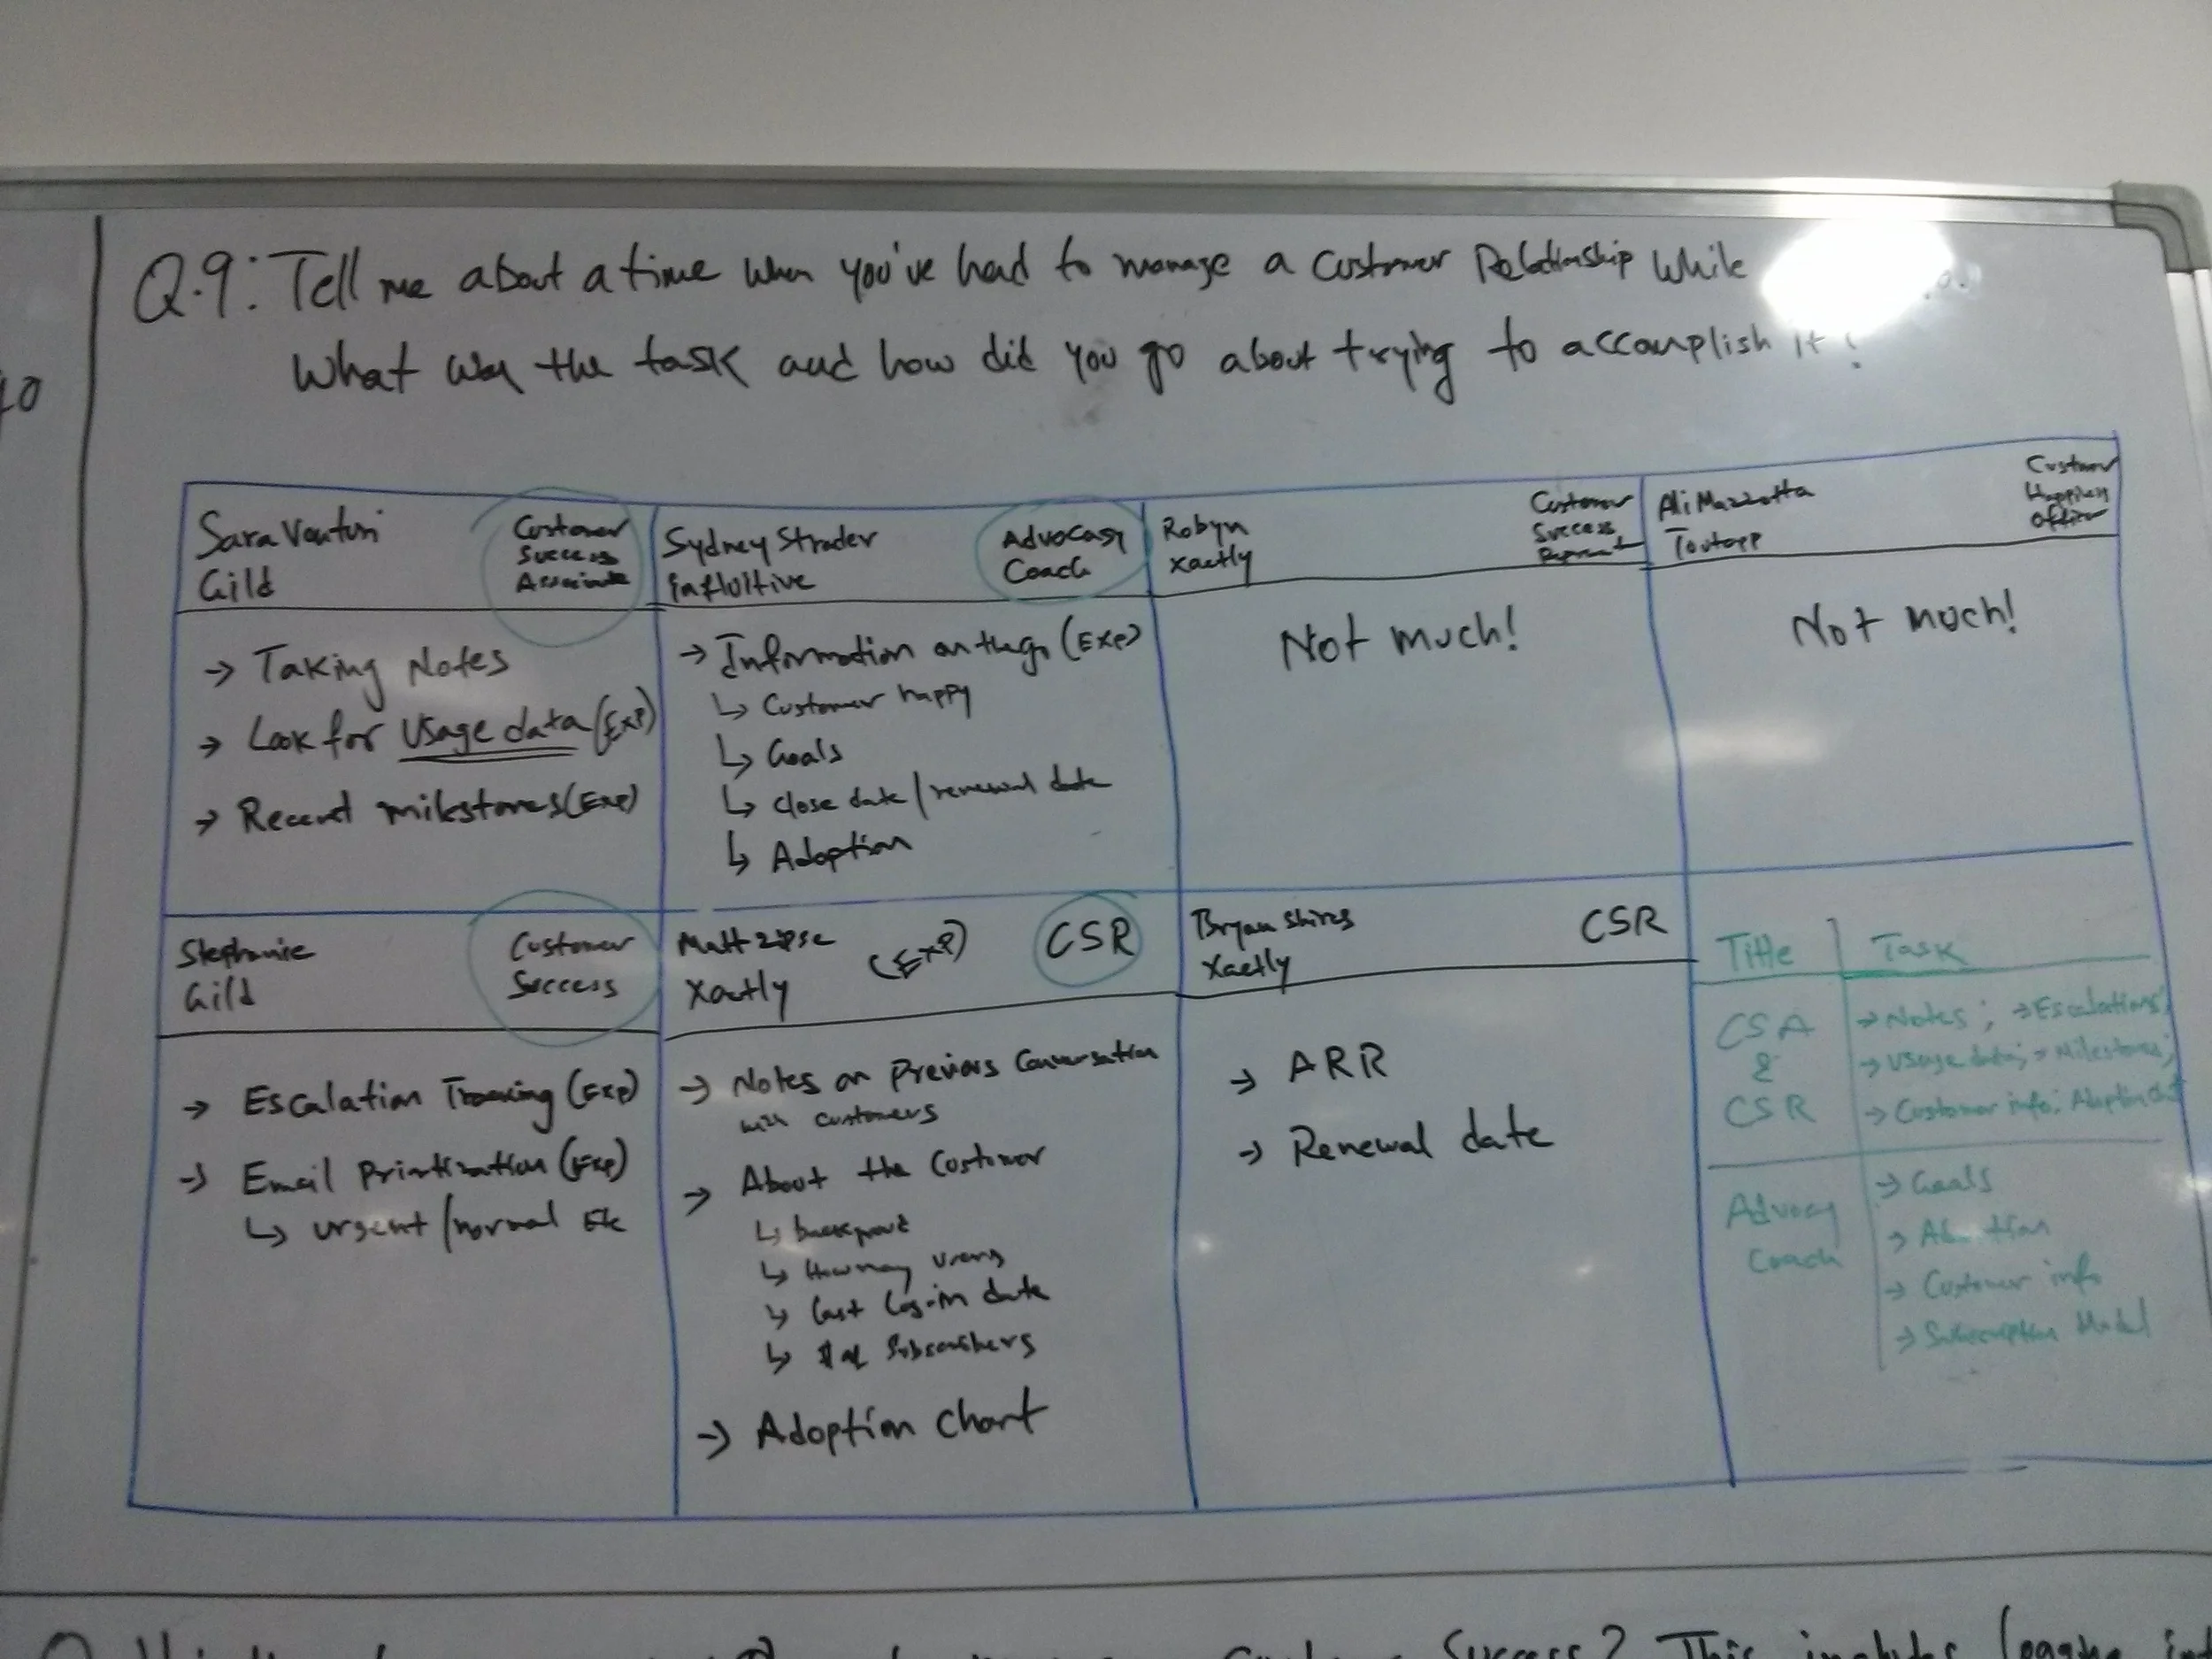 Q.9: Tell me about a time when you've had to manage a Customer Relationship While
What was the task and how did you go about trying to accomplish it?
Sara Venturi
Gild
Customer
Success
Associate
Sydney Strader
influitive
Advocacy
Coach
Robyn
Xactly
Customer
Success
Ali Mazzotta
Toutapp
Customer
Happiness
Officer
→ Taking Notes
→ Look for Usage data (Exp)
→ Recent milestones (Exp)
→ Information on the go (Exp)
↳ Customer happy
↳ Goals
↳ Close date / renewal date
↳ Adoption
Not much!
Not much!
Stephanie
Gild
Customer
Success
Matt zipse
Xactly
(Exp)
CSR
Bryan Shires
Xactly
CSR
→ Escalation Tracking (Exp)
→ Email Priortization (Exp)
↳ urgent / normal Etc
→ Notes on Previous Conversation
with customers
→ About the Customer
↳ How many users
↳ Last Log-in date
↳ # of Subscribers
→ Adoption Chart
→ ARR
→ Renewal date
Title
Task
CSA
&
CSR
→ Notes; → Escalations;
→ Usage data; → Milestones;
→ Customer info; Adoption
Advocacy
Coach
→ Goals
→ Adoption
→ Customer info
→ Subscription Model
Success? This includes